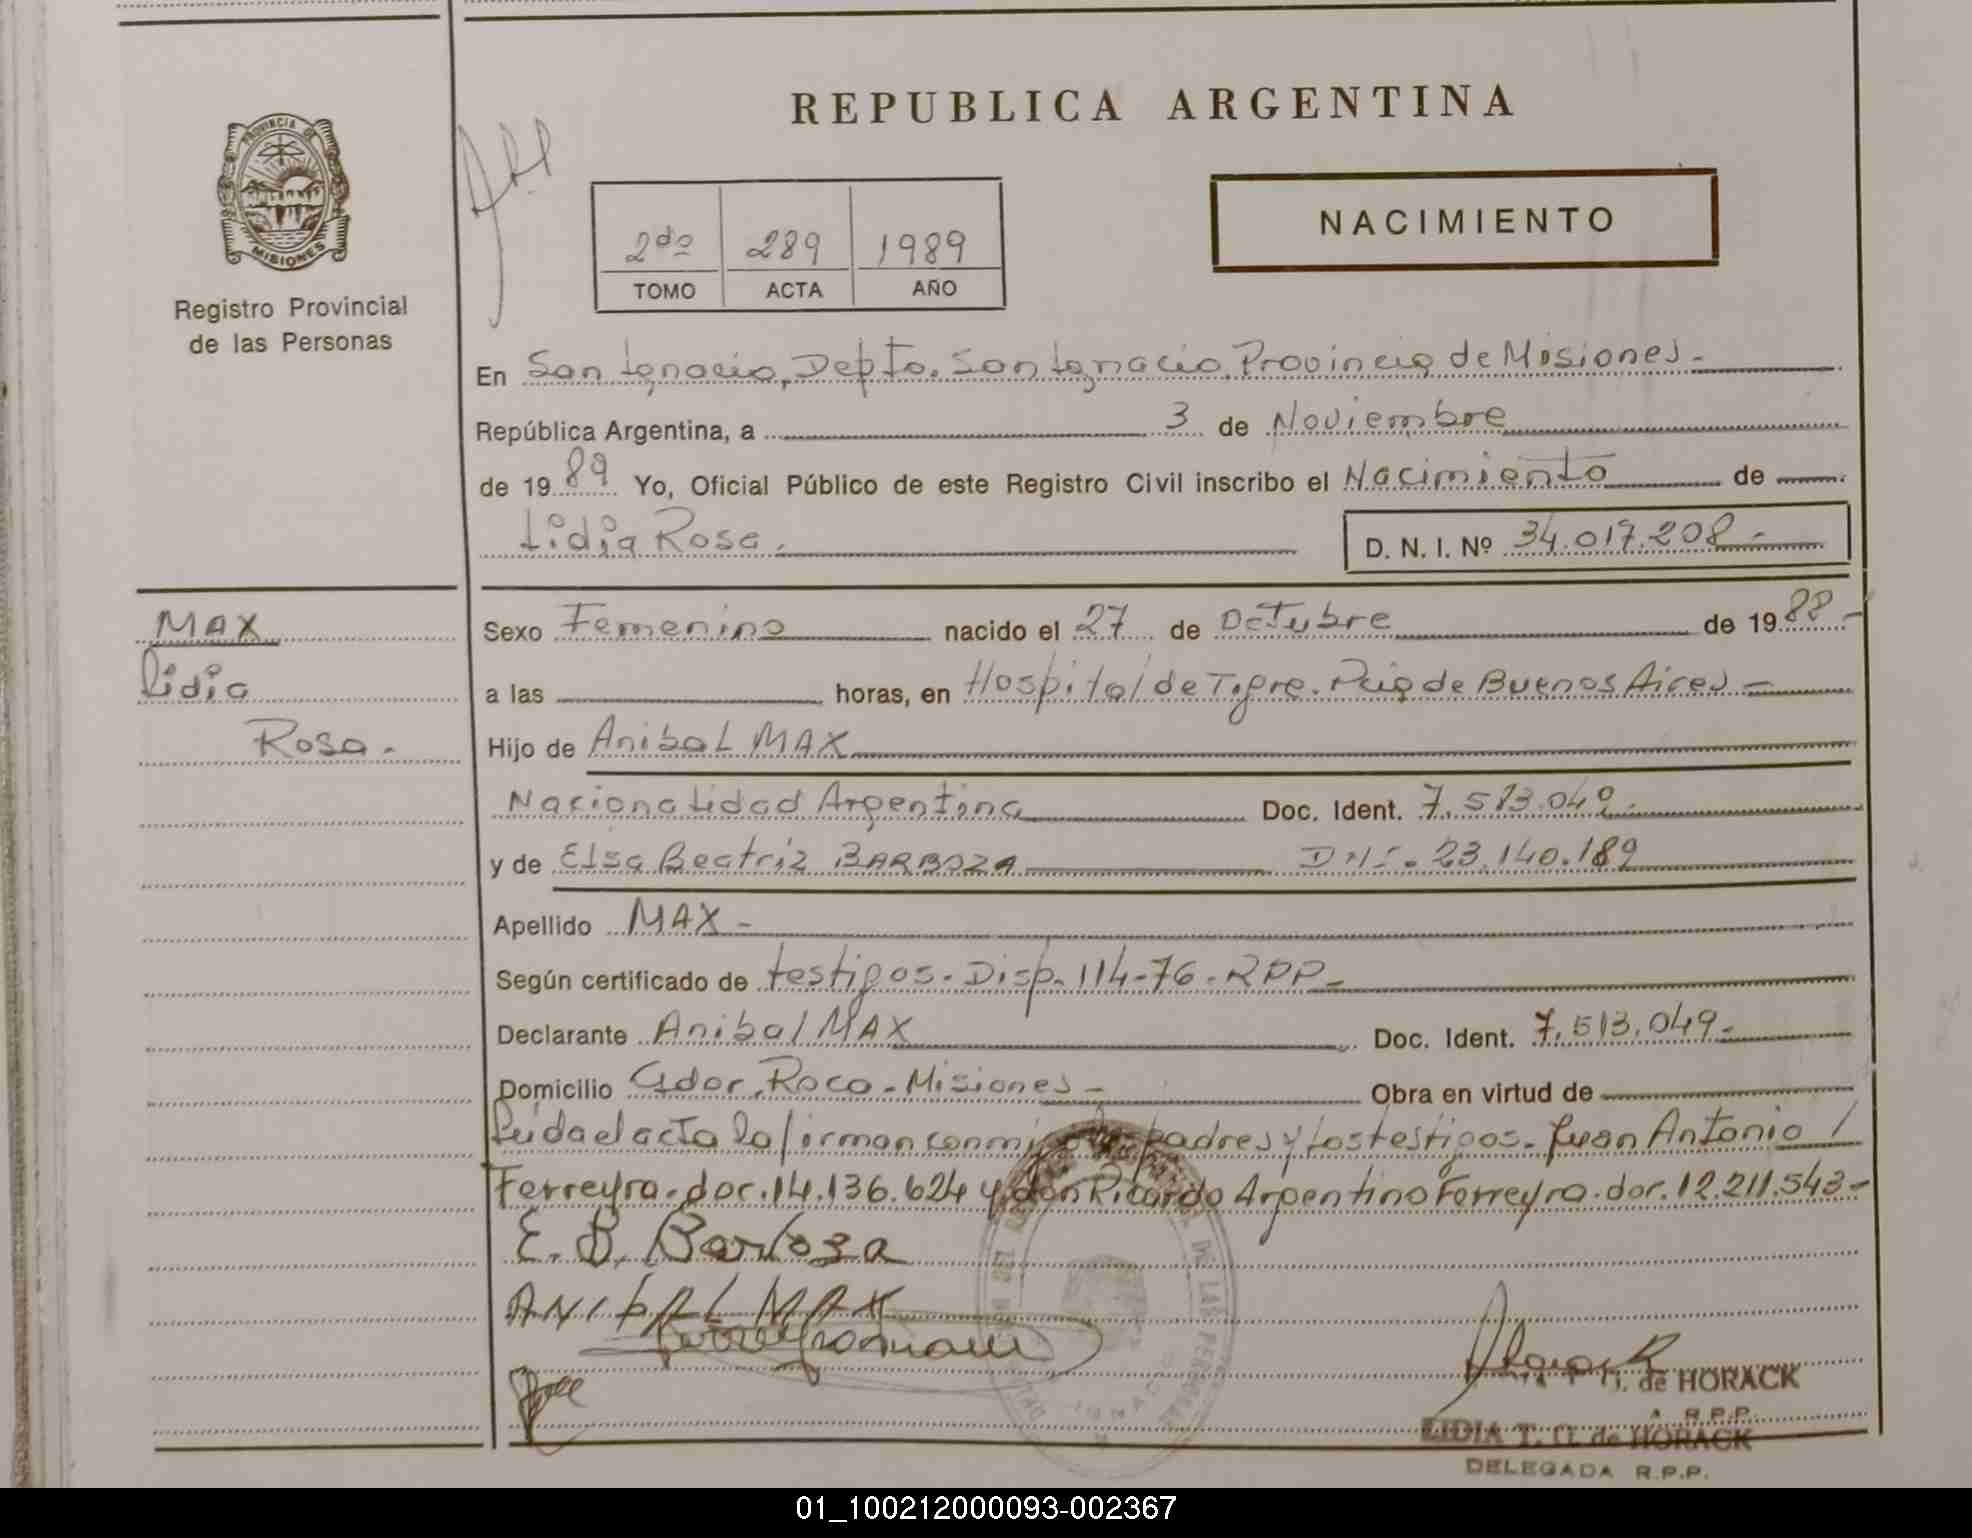 PROVINCIA DE
MISIONES
Registro Provincial
de las Personas
REPUBLICA ARGENTINA
NACIMIENTO
2do 289 1989
TOMO ACTA AÑO
En San Ignacio, Depto. San Ignacio, Provincia de Misiones.-
República Argentina, a 3 de Noviembre
de 1989 Yo, Oficial Público de este Registro Civil inscribo el Nacimiento de
Lidia Rosa. D. N. I. Nº 34.017.208.-
MAX
Lidia
Rosa.
Sexo Femenino nacido el 27 de Octubre de 1988-
a las horas, en Hospital de Tigre. Pcia de Buenos Aires -
Hijo de Anibal MAX
Nacionalidad Argentina Doc. Ident. 7.513.049.
y de Elsa Beatriz BARBOZA DNI. 23.140.189
Apellido MAX -
Según certificado de testigos. Disp. 114-76. RPP-
Declarante Anibal MAX Doc. Ident. 7.513.049.
Domicilio Gdor. Roca - Misiones - Obra en virtud de
Leida el acta la firman conmigo padres y los testigos. Juan Antonio /
Ferreyra. doc. 14.136.624 y don Ricardo Argentino Ferreyra. doc. 12.211.543-
E. B. Barboza
ANIBAL MAX
de HORACK
R.P.P.
LIDIA T. de HORACK
DELEGADA R.P.P.
01_100212000093-002367